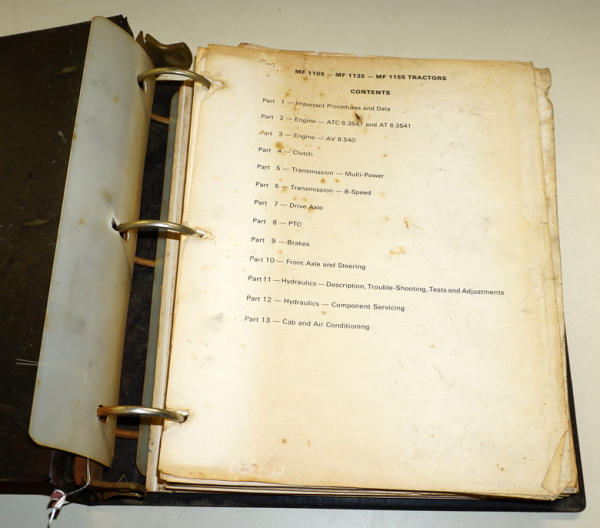 MF 1105 — MF 1135 — MF 1155 TRACTORS
CONTENTS
Part 1 — Important Procedures and Data
Part 2 — Engine — ATC 6.3541 and AT 6.3541
Part 3 — Engine — AV 8.540
Part 4 — Clutch
Part 5 — Transmission — Multi-Power
Part 6 — Transmission — 8-Speed
Part 7 — Drive Axle
Part 8 — PTO
Part 9 — Brakes
Part 10 — Front Axle and Steering
Part 11 — Hydraulics — Description, Trouble-Shooting, Tests and Adjustments
Part 12 — Hydraulics — Component Servicing
Part 13 — Cab and Air Conditioning